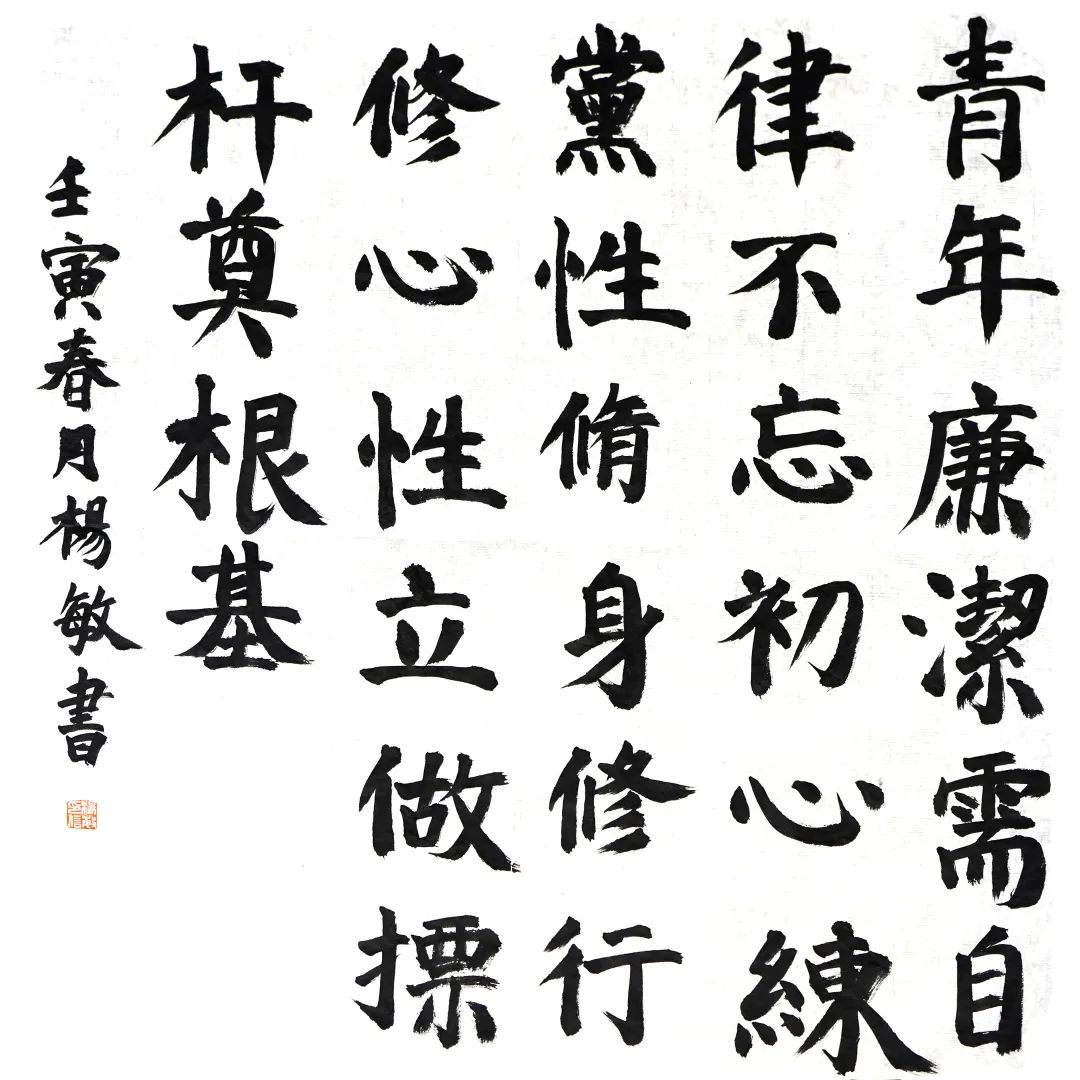 青年廉潔需自
律不忘初心練
黨性脩身修行
修心性立做摽
杆奠根基
壬寅春月楊敏書